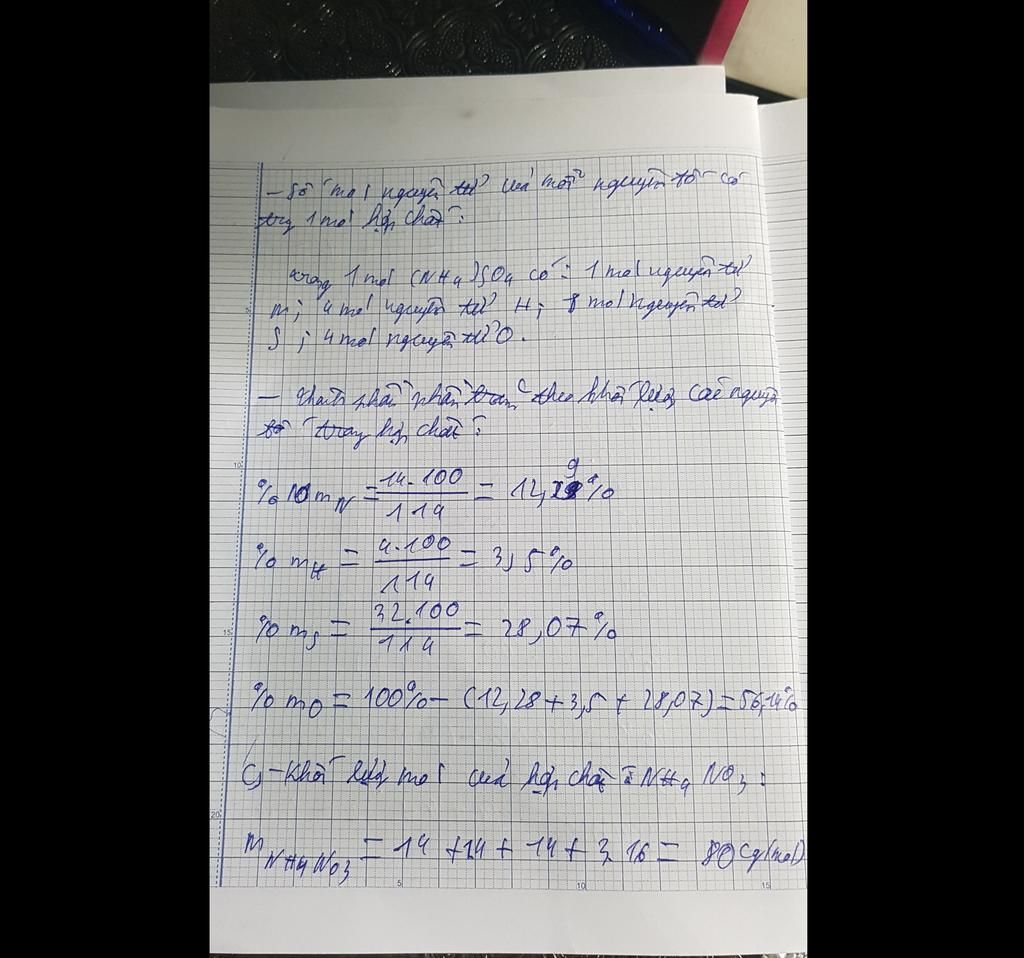 - Số mol nguyên tử của mỗi nguyên tố có
trong 1 mol hợp chất:
trong 1 mol (NH4)SO4 có: 1 mol nguyên tử
N; 4 mol nguyên tử H; 1 mol nguyên tử
S; 4 mol nguyên tử O.
- thành phần phần trăm theo khối lượng các nguyên
tố trong hợp chất:
% mN = 14.100/114 = 12,28%
% mH = 4.100/114 = 3,5%
% mS = 32.100/114 = 28,07%
% mO = 100% - (12,28 + 3,5 + 28,07) = 56,14%
c) - Khối lượng mol của hợp chất NH4NO3:
m NH4NO3 = 14 + 1.4 + 14 + 3.16 = 80 (g/mol)
5 10 15
10
15
20